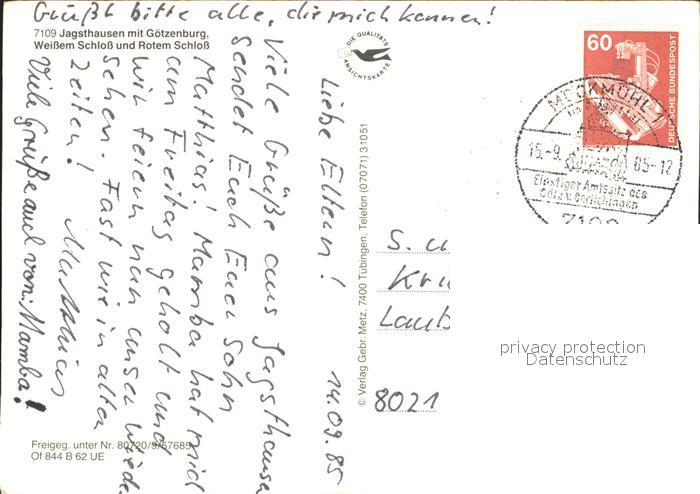 Grüßt bitte alle, die mich kennen!
7109 Jagsthausen mit Götzenburg,
Weißem Schloß und Rotem Schloß
DIE QUALITÄTS
ANSICHTSKARTE
60
DEUTSCHE BUNDESPOST
MÖCKMÜHL 1
15.-9. 85-12
Einstiger Amtssitz des
Götz v. Berlichingen
7108
Liebe Eltern! 14.09.85
Viele Grüße aus Jagsthausen
sendet Euch Euer Sohn
Matthias! Mamba hat mich
am Freitag geholt und
wir feiern nun unser Wieder
sehen. Fast wie in alten
Zeiten! Matthias
Viele Grüße auch von: Mamba!
© Verlag Gebr. Metz, 7400 Tübingen, Telefon (07071) 31051
S. u
Kru
Laub
8021
privacy protection
Datenschutz
Freigeg. unter Nr. 80720/9/57685
Of 844 B 62 UE